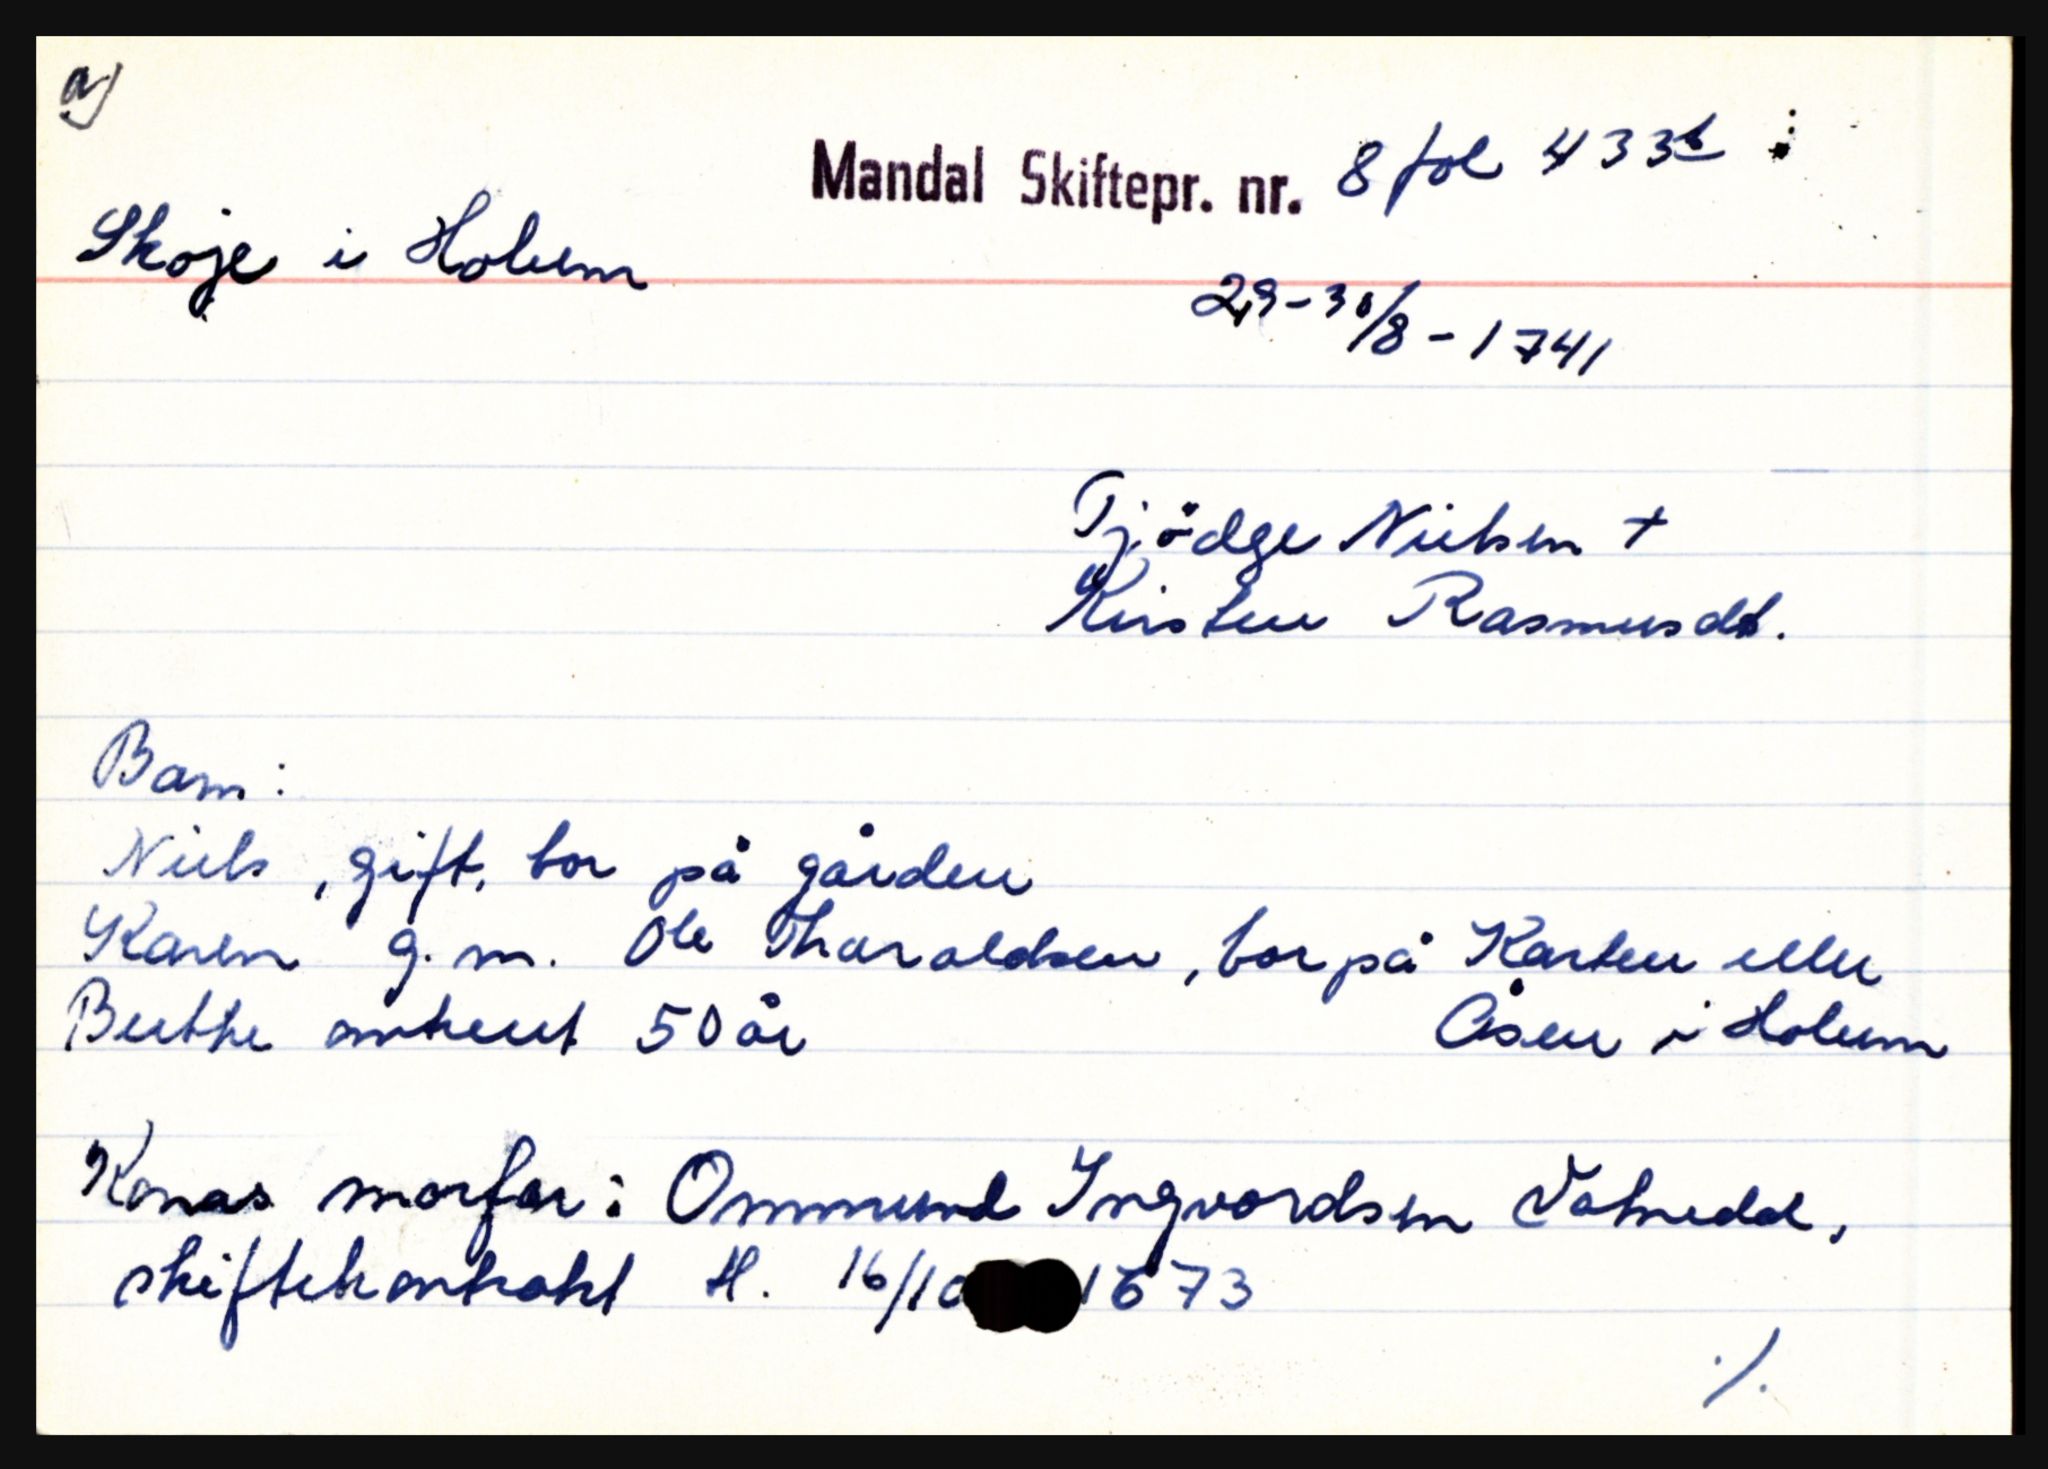 a)
Mandal Skiftepr. nr. 8 fol 433b
Skoje i Holum
29-30/8-1741
Tjödge Nielsen +
Kirsten Rasmusdt.
Barn:
Niels, gift, bor på gården
Karen g.m. Ole Tharaldsen, bor på Karten eller
Åsen i Holum
Berthe omtrent 50 år
Konas morfar: Ommund Ingvordsen
skiftekontrakt H. 16/10 1673
./.